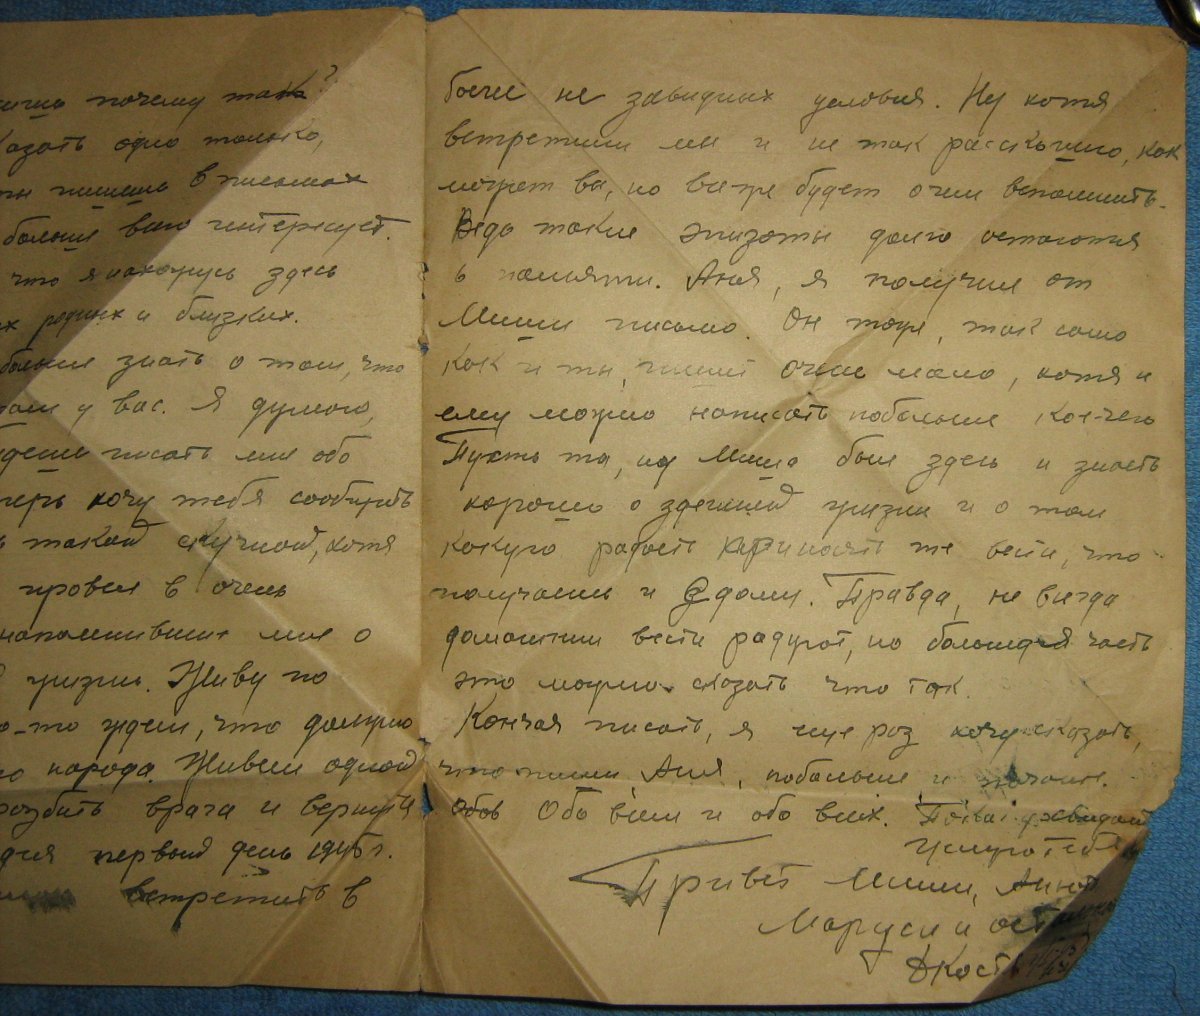 почему так?
сказать одно только,
ты пишешь в письмах
больше вас интересует.
что я нахожусь здесь
родных и близких.
больше знать о том, что
у вас. Я думаю,
писать мне обо
хочу тебя сообщить
такой скучной, хотя
провел в очень
напоминавших мне о
жизни. Живу по
ждем, что должно
народа. Живем одной
разбить врага и вернуться
первый день 1945 г.
встретить в
более не завидных условия. Ну хотя
встретили мы и не так расскышно, как
может вы, но все же будет о чем вспомнить.
Ведь такие эпизоты долго остаются
в памяти. Аня, я получил от
Миши письмо. Он тоже, так само
как и ты, пишет очень мало, хотя и
ему можно написать побольше кое-чего
Пусть ты, но Миша был здесь и знает
хорошо о здешней жизни и о том
какую радость приносят те вести, что
получаешь из дому. Правда, не всегда
домашнии вести радуют, но большая часть
это можно сказать что так.
Кончая писать, я еще раз хочу сказать,
что пиши Аня, побольше и
Обо всем и обо всех. Пока
Целую тебя
Привет Миши, Анют
Маруси и
Кость